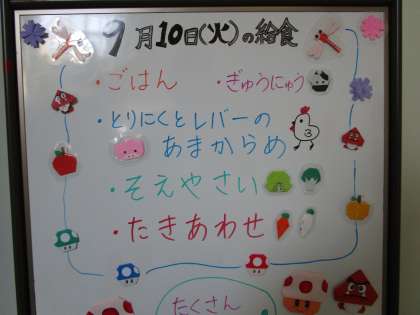 9月10日(火)の給食
・ごはん ・ぎゅうにゅう
・とりにくとレバーの
あまからめ
・そえやさい
・たきあわせ
たくさん